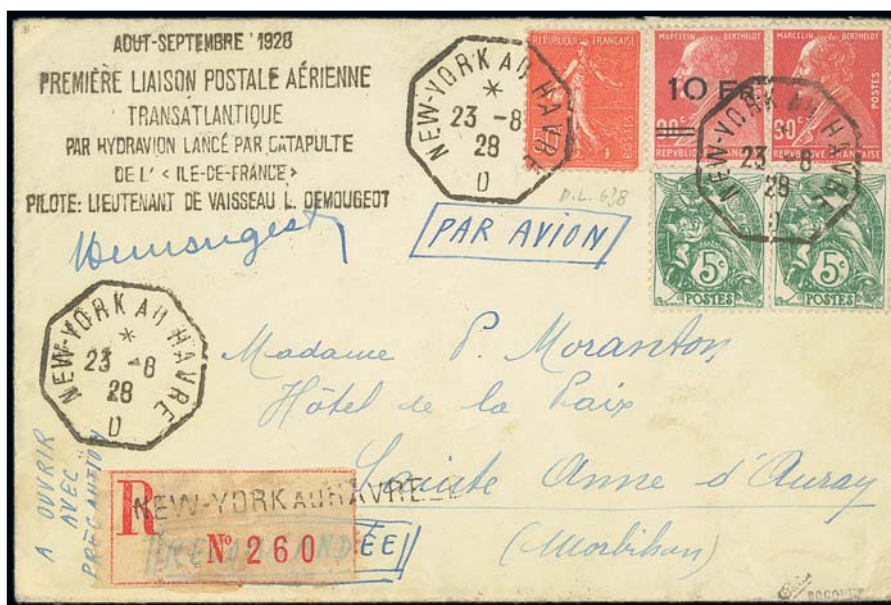 AOUT-SEPTEMBRE 1928
PREMIÈRE LIAISON POSTALE AÉRIENNE
TRANSATLANTIQUE
PAR HYDRAVION LANCÉ PAR CATAPULTE
DE L' < ILE-DE-FRANCE >
PILOTE: LIEUTENANT DE VAISSEAU L. DEMOUGEOT
Demougeot
NEW-YORK AU HAVRE
*
23 -8
28
D
RÉPUBLIQUE FRANÇAISE
POSTES
MARCELIN BERTHELOT
10 FR.
90c
RÉPUBLIQUE FRANÇAISE
MARCELIN BERTHELOT
POSTES
90c
RÉPUBLIQUE FRANÇAISE
NEW-YORK AU HAVRE
23 -8
28
D
D.L. 638
5c
POSTES
5c
POSTES
PAR AVION
NEW-YORK AU HAVRE
*
23 -8
28
D
Madame P. Moranton
Hôtel de la Paix
Sainte Anne d'Auray
(Morbihan)
A OUVRIR
AVEC
PRÉCAUTION
R
NEW-YORK AU HAVRE
No 260